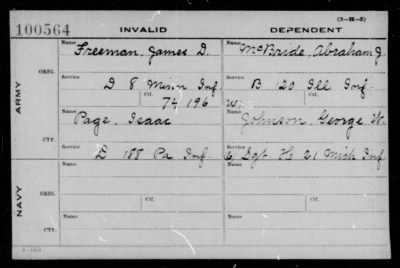 (3-H-5)
100564 INVALID DEPENDENT
ARMY
ORIG.
Name Freeman, James D. Name McBride, Abraham J.
Service D 8 Minn Inf Service B 120 Ill Inf
Ctf. 74 196 Ctf.
CTF.
Name Page, Isaac Name Johnson, George W.
Service D 188 Pa Inf Service Sgt H 21 Mich Inf
NAVY
ORIG.
Name Name
Ctf. Ctf.
CTF.
Name Name